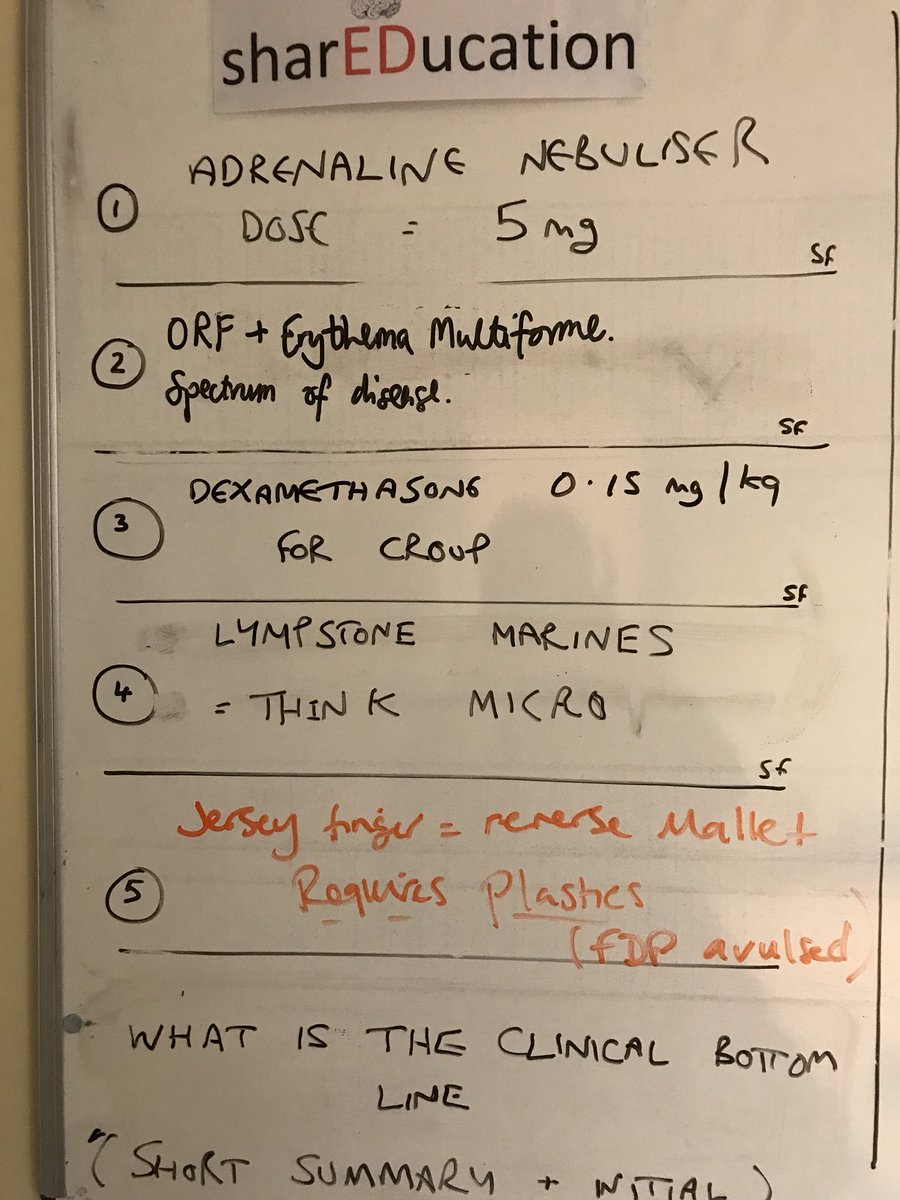 sharEDucation
① ADRENALINE NEBULISER
DOSE = 5 mg
SF
② ORF + Erythema Multiforme.
Spectrum of disease.
SF
③ DEXAMETHASONE 0.15 mg/kg
FOR CROUP
SF
④ LYMPSTONE MARINES
= THINK MICRO
SF
⑤ Jersey finger = reverse Mallet
Requires Plastics
(FDP avulsed)
WHAT IS THE CLINICAL BOTTOM
LINE
(SHORT SUMMARY + INITIAL)